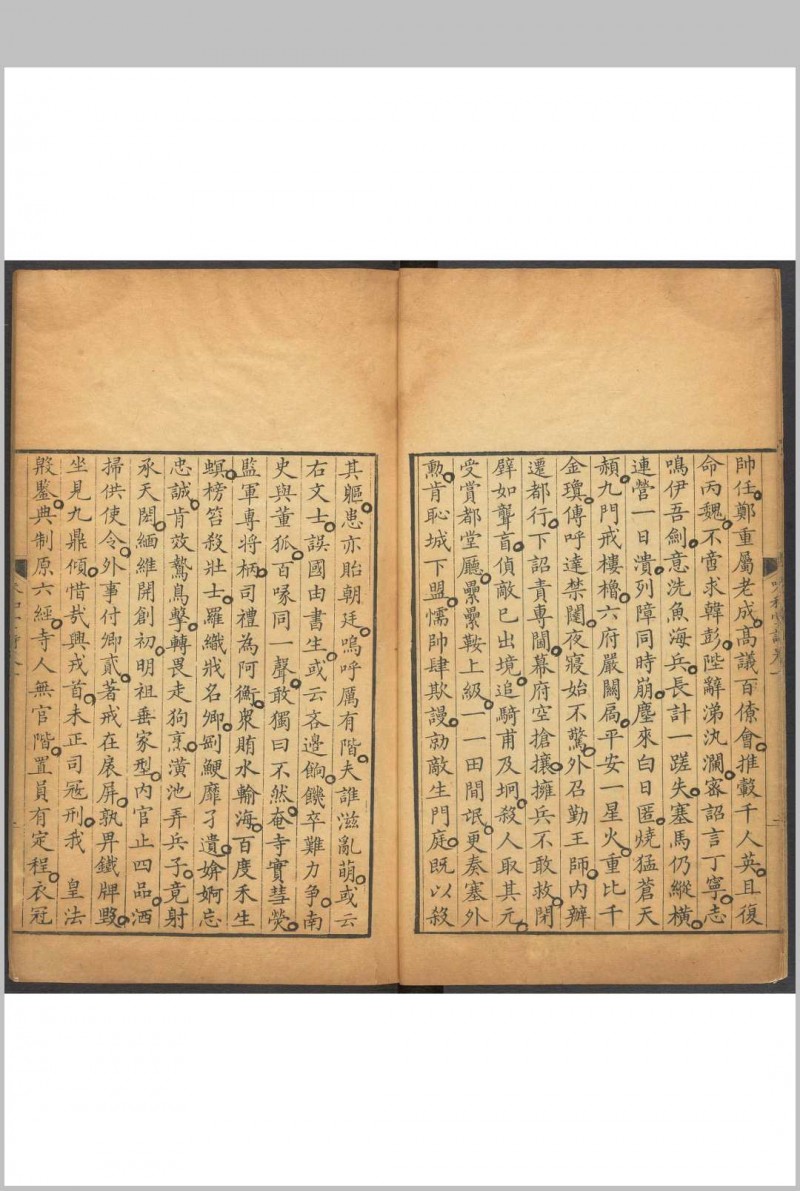 帥任鄭重屬老成高議百僚會推轂千人英且復
命丙魏不啻求韓彭陛辭涕汍瀾密詔言丁寧志
鳴伊吾劍意洗魚海兵長計一蹉失塞馬仍縱橫
連營一日潰列障同時崩塵來白日匿燒猛蒼天
赬九門戒樓櫓六府嚴關扃平安一星火重比千
金瓊傳呼達禁闥夜寢始不驚外召勤王師內辦
遷都行下詔責專閫幕府空搶攘擁兵不敢救閉
壁如聾盲偵敵已出境追騎甫及坰殺人取其元
受賞都堂廳纍纍鞍上級一一田間氓更奏塞外
勳肯恥城下盟懦帥肆欺謾勍敵生門庭既以殺
其軀患亦貽朝廷嗚呼厲有階夫誰滋亂萌或云
右文士誤國由書生或云吝邊餉饑卒難力爭南
史與董狐百喙同一聲敢獨曰不然奄寺實彗熒
監軍專將柄司禮為阿衡眾賄水輸海百度禾生
螟榜笞殺壯士羅織戕名卿剛鯁靡孑遺媕婀忘
忠誠肯效鷙鳥擊轉畏走狗烹潢池弄兵子竟射
承天闕緬維開創初明祖垂家型內官止四品洒
掃供使令外事付卿貳著戒在扆屏孰畀鐵牌毀
坐見九鼎傾惜哉興戎首未正司寇刑我　皇法
殷鑒典制原六經寺人無官階置員有定程衣冠